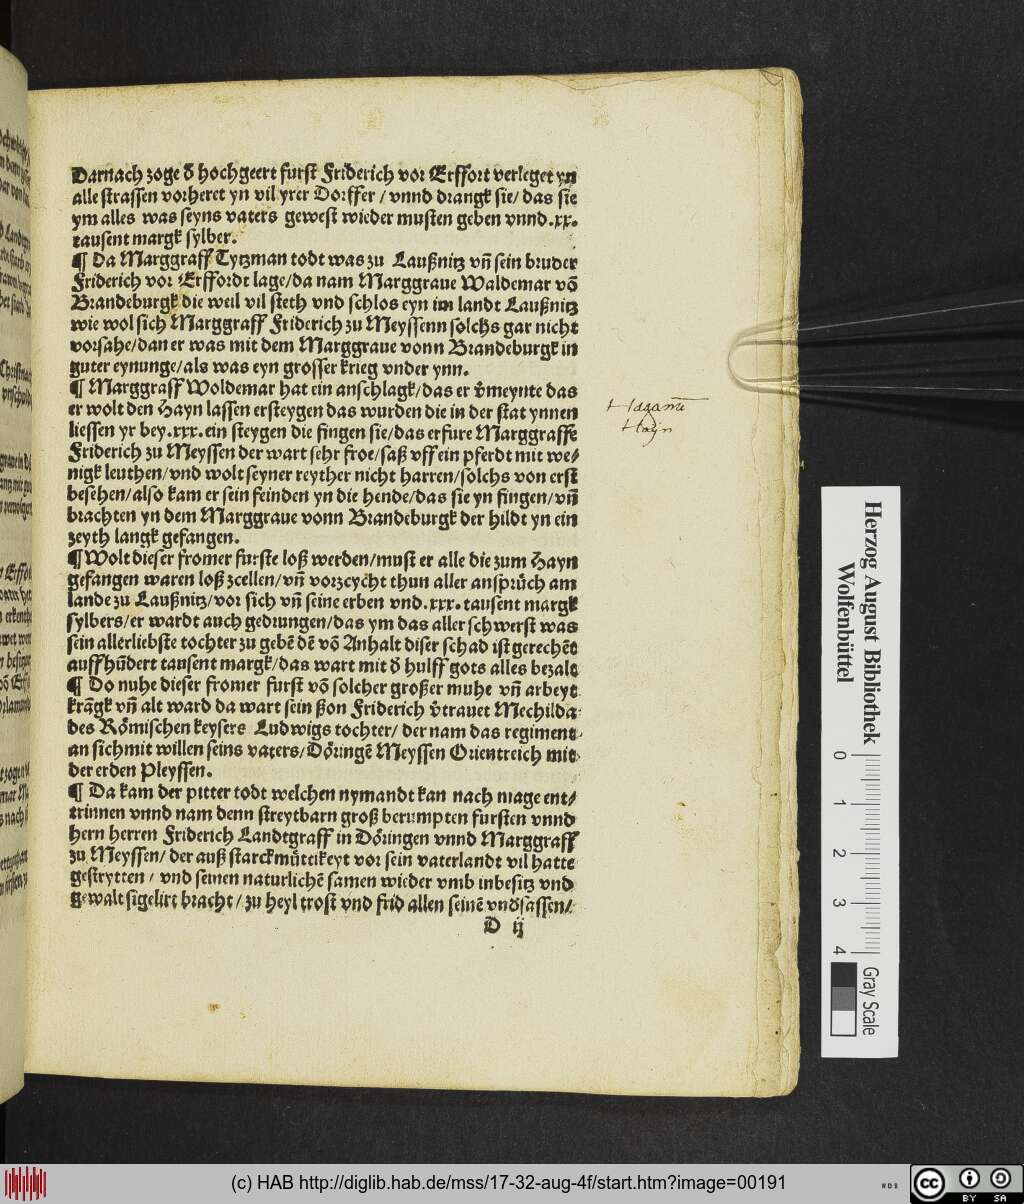 Darnach zoge d̄ hochgeert furst Friderich vor Erffort verleget yn
alle strassen vorheret yn vil yrer Dorffer / vnnd drangk sie/ das sie
ym alles was seyns vaters gewest wieder musten geben vnnd .xx.
tausent margk sylber.
¶ Da Marggraff Tytzman todt was zu Laußnitz vñ sein bruder
Friderich vor Erffordt lage/da nam Marggraue Waldemar võ
Brandeburgk die weil vil steth vnd schlos eyn im landt Laußnitz
wie wol sich Marggraff Friderich zu Meyssenn solchs gar nicht
vorsahe/dan er was mit dem Marggraue vonn Brandeburgk in
guter eynunge/als was eyn grosser krieg vnder ynn.
¶ Marggraff Woldemar hat ein anschlagk/das er v̄meynte das
er wolt den Hayn lassen ersteygen das wurden die in der stat ynnen
liessen yr bey .xxx. ein steygen die fingen sie/das erfure Marggraffe
Friderich zu Meyssen der wart sehr froe/saß vff ein pferdt mit we/
nigk leuthen/vnd wolt seyner reyther nicht harren/solchs von erst
besehen/also kam er sein feinden yn die hende/das sie yn fingen/vñ
brachten yn dem Marggraue vonn Brandeburgk der hildt yn ein
zeyth langk gefangen.
¶ Wolt dieser fromer furste loß werden/must er alle die zum Hayn
gefangen waren loß zcellen/vñ vorzcycht thun aller ansprůch am
lande zu Laußnitz/vor sich vñ seine erben vnd .xxx. tausent margk
sylbers/er wardt auch gedrungen/das ym das aller schwerst was
sein allerliebste tochter zu gebē dē võ Anhalt diser schad ist gerechēt
auff hūdert tausent margk/das wart mit d̄ hulff gots alles bezalt
¶ Do nuhe dieser fromer furst võ solcher großer muhe vñ arbeyt
krāgk vñ alt ward da wart sein ßon Friderich v̄trauet Mechilda
des Rőmischen keysers Ludwigs tochter/ der nam das regiment
an sich mit willen seins vaters/Dőringē Meyssen Orientreich mit
der erden Pleyssen.
¶ Da kam der pitter todt welchen nymandt kan nach mage ent/
trinnen vnnd nam denn streytbarn groß berumpten fursten vnnd
hern herren Friderich Landtgraff in Dőringen vnnd Marggraff
zu Meyssen/ der auß starckmůtikeyt vor sein vaterlandt vil hatte
gestrytten / vnd seinen naturlichē samen wieder vmb inbesitz vnd
gewalt sigelirt bracht / zu heyl trost vnd frid allen seinē vnd̄sassen/
D ij
Hayn
Herzog August Bibliothek
Wolfenbüttel
0 1 2 3 4
Gray Scale
(c) HAB http://diglib.hab.de/mss/17-32-aug-4f/start.htm?image=00191
cc BY SA